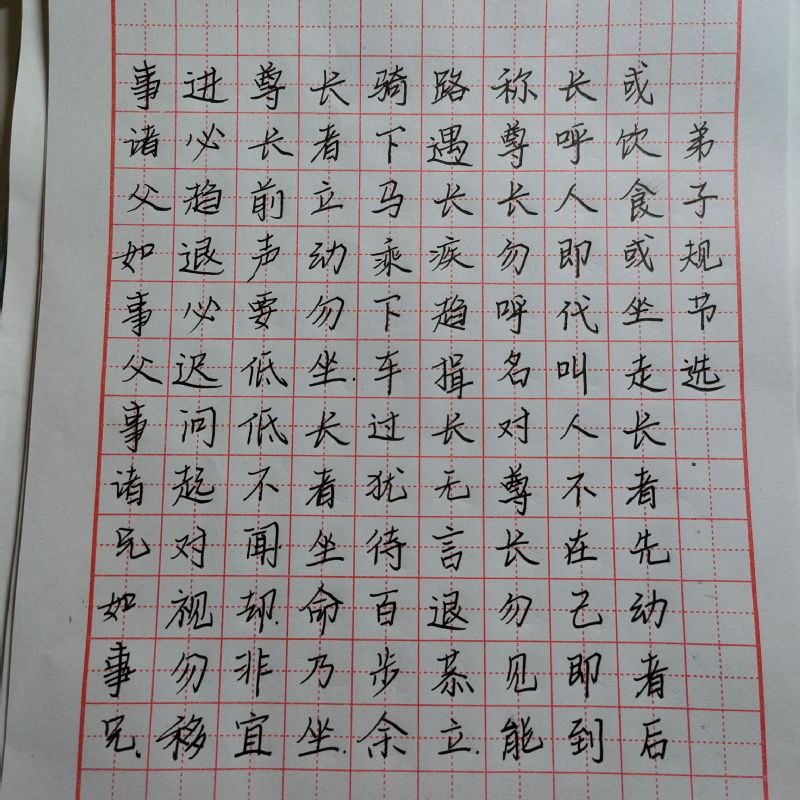 弟子规节选
或饮食或坐走长者先动者后
长呼人即代叫人不在己即到
称尊长勿呼名对尊长勿见能
路遇长疾趋揖长无言退恭立.
骑下马乘下车过犹待百步余
长者立动勿坐.长者坐命乃坐.
尊长前声要低低不闻却.非宜
进必趋退必迟问起对视勿移
事诸父如事父事诸兄如事兄.